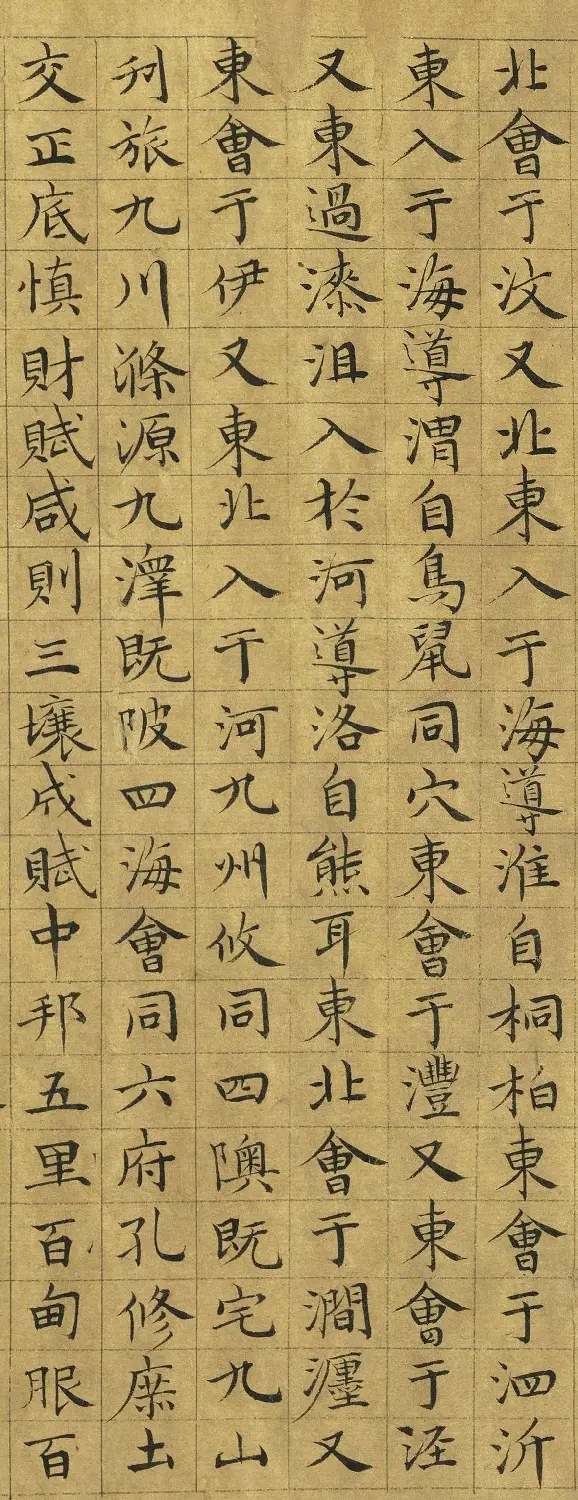 北會于汶又北東入于海導淮自桐柏東會于泗沂
東入于海導渭自鳥鼠同穴東會于灃又東會于涇
又東過漆沮入於河導洛自熊耳東北會于澗瀍又
東會于伊又東北入于河九州攸同四隩既宅九山
刋旅九川滌源九澤既陂四海會同六府孔修庶土
交正底慎財賦咸則三壤成賦中邦五里百甸服百